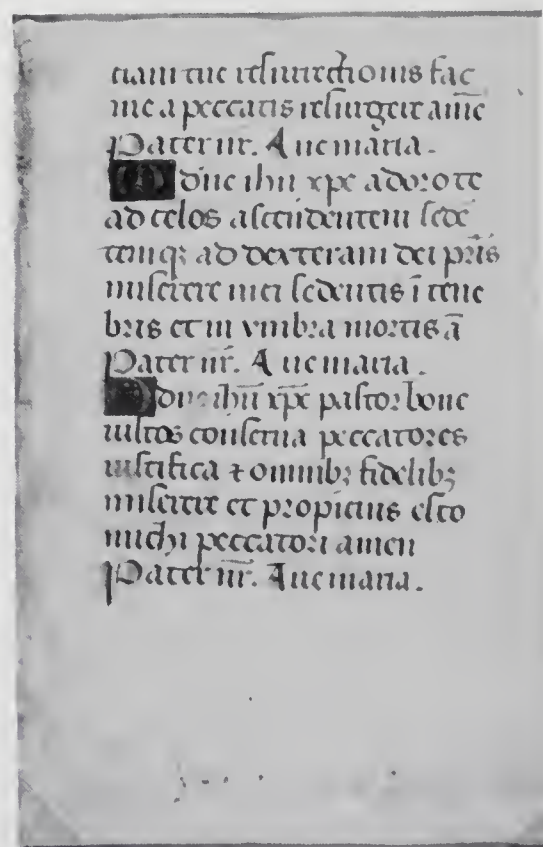 ciam tue resurrectionis fac
me a peccatis resurgere amē
Pater nr̄. Aue maria.
O dn̄e ihū xp̄e adoro te
ad celos ascendentem sedē
temq; ad dexteram dei pr̄is
miserere mei sedentis ī tene
bris et in vmbra mortis ā
Pater nr̄. Aue maria.
O dn̄e ihū xp̄e pastor bone
iustos conserua peccatores
iustifica ⁊ omnibꝫ fidelibꝫ
miserere et propicius esto
michi peccatori amen
Pater nr̄. Aue maria.